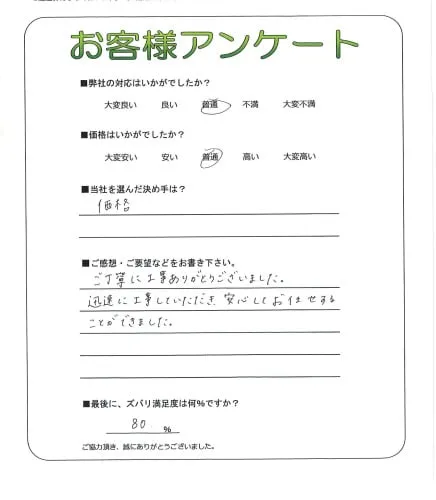 お客様アンケート
■弊社の対応はいかがでしたか？
大変良い 良い 普通 不満 大変不満
■価格はいかがでしたか？
大変安い 安い 普通 高い 大変高い
■当社を選んだ決め手は？
価格
■ご感想・ご要望などをお書き下さい。
ご丁寧に工事ありがとうございました。
迅速に工事していただき 安心してお任せする
ことができました。
■最後に、ズバリ満足度は何％ですか？
80 ％
ご協力頂き、誠にありがとうございました。